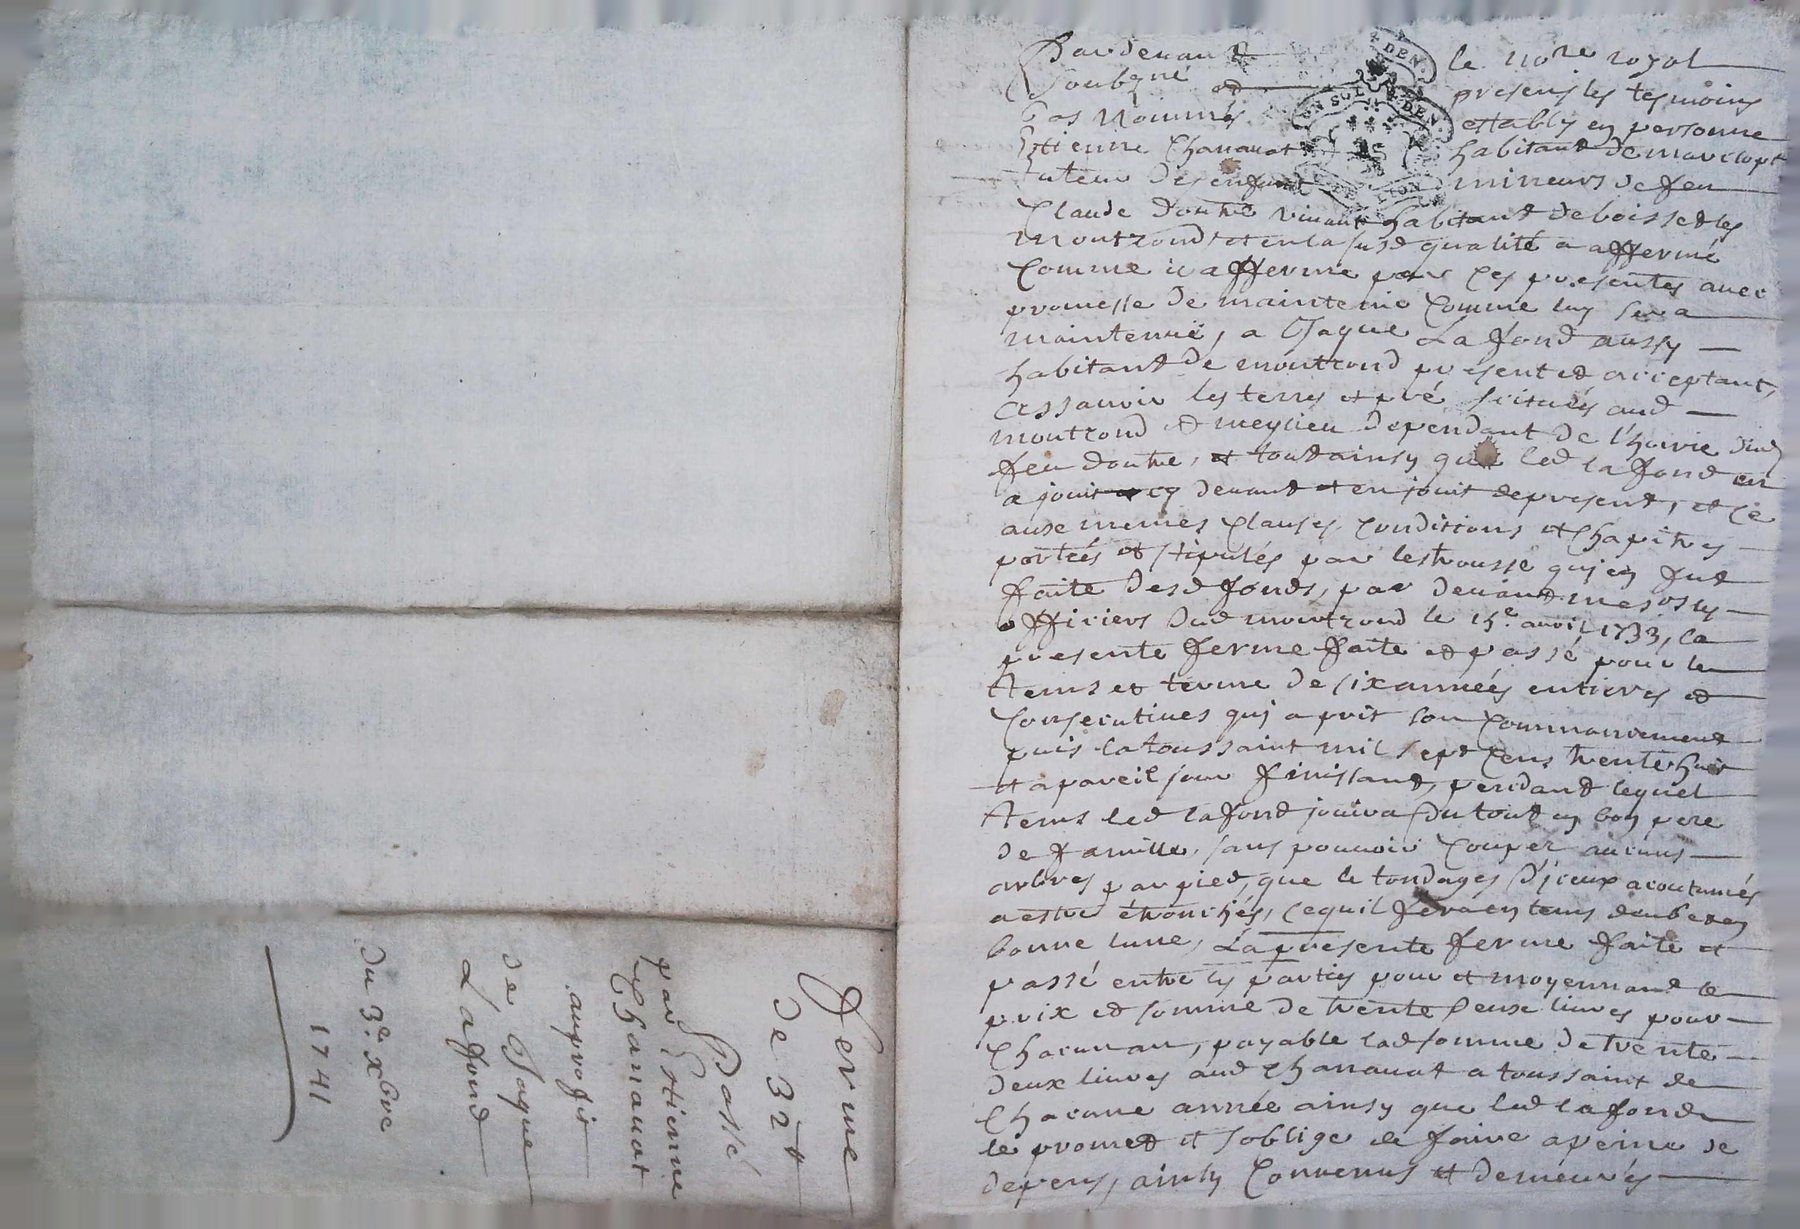 Ferme
de 32lt
Passé
par Estienne
Chanauat
auprofit
de Jaque
Laffond
du 3e xbre
1741
Pardeuant le nore royal
Soubsné et presens les tesmoins
bas Nommés estably en personne
Estienne Chanauat habitant de
tuteur des enfants mineurs de feu
Claude Doutre viuant habitant de boisset les
montrond et en la susd qualité a affermé
Comme il afferme par ces presentes auec
promesse de maintenir Comme luy sera
maintenue, a Jaque Lafond aussy
habitant de montrond present et acceptant,
assauoir les terres et pré scitués aud
montrond et meylieu dependant de l'hoirie dud
feu doutre, et tout ainsy que led lafond en
a jouit cy deuant et en jouit de present, et ce
aux memes Clauses Conditions et Chapitres
portées et stipulés par lestrousse quj en fut
faite desd fonds, par deuant mes srs les
officiers dud montrond le 15e auril 1733, la
presente ferme faite et passé pour le
tems et terme de six années entieres et
Consecutiues quj a prit son Commancement
puis la toussaint mil sept Cens trente huit
et a pareil jour finissant, pendant lequel
tems led lafond jouira du tout en bon pere
de famille, sans pouuoir Couper aucuns
arbres par pied, que le tondages d'jceux acoutumés
a estre ébranchés, ce quil fera en tems deub et en
bonne lune, La presente ferme faite et
passé entre les parties pour et moyennant le
prix et somme de trente deux liures pour
Chacun an, payable lad somme de trente
deux liures aud Chanauat a toussaint de
Chacune année ainsy que led lafond
le promet et s'oblige de faire a peine de
depens, ainsy Conuenus et demeurés